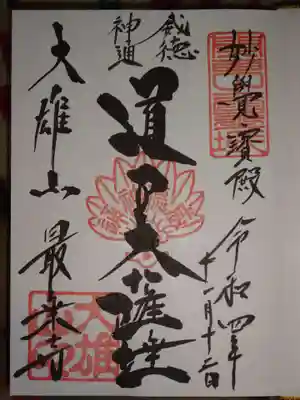 妙覺寳殿
令和四年
十一月十二日
威徳
神通
道了大薩埵
大雄山
最乗寺